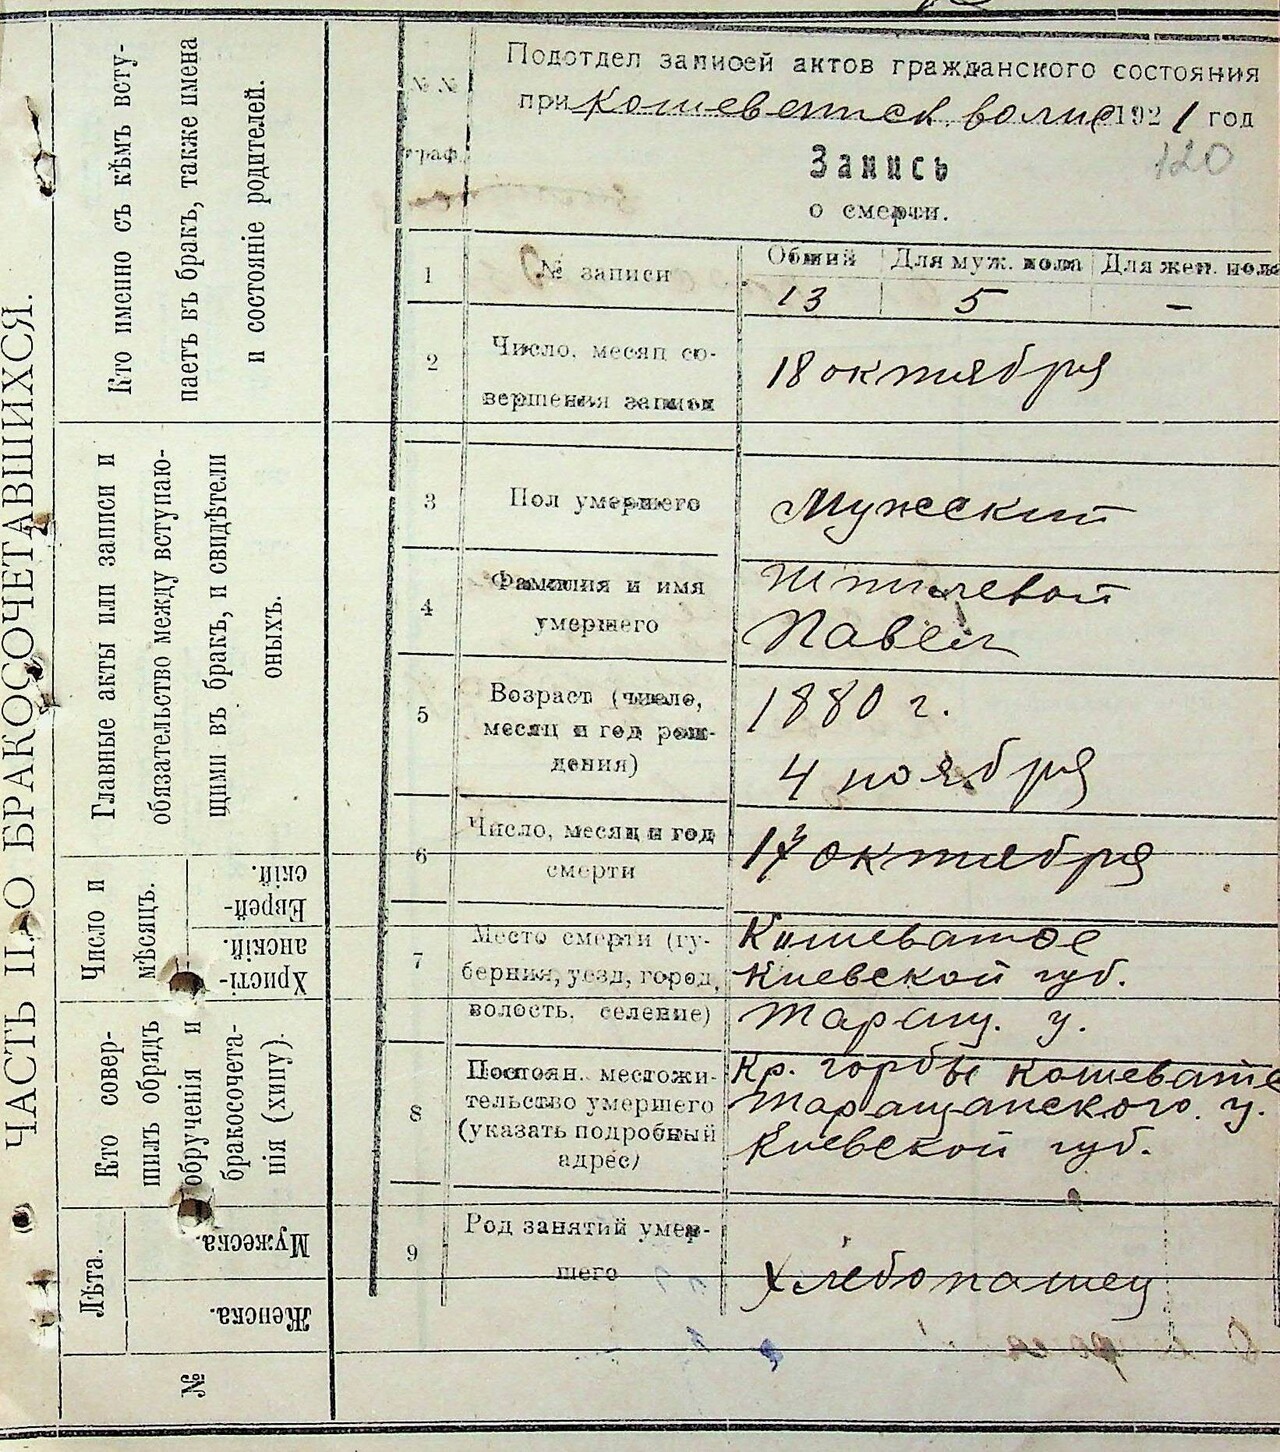 ЧАСТЬ II. О БРАКОСОЧЕТАВШИХСЯ.
Кто именно съ кѣмъ всту-
паетъ въ бракъ, также имена
и состояніе родителей.
Главные акты или записи и
обязательство между вступаю-
щими въ бракъ, и свидѣтели
оныхъ.
Число и
мѣсяцъ.
Еврей-
скій.
Христі-
анскій.
Кто совер-
шилъ обрядъ
обрученія и
бракосочета-
нія (хипу).
Лѣта.
Мужеска.
Женска.
№
№ №
граф.
Подотдел записей актов гражданского состояния
при Кошеватск. волис 1921 год
Запись
120
о смерти.
1
№ записи
Общий
Для муж. пола
Для жен. пола
13
5
–
2
Число, месяц со-
вершения записи
18 октября
3
Пол умершего
Мужеский
4
Фамилия и имя
умершего
Шпилевой
Павел
5
Возраст (число,
месяц и год рож-
дения)
1880 г.
4 ноября
6
Число, месяц и год
смерти
17 октября
7
Место смерти (гу-
берния, уезд, город,
волость, селение)
Кошеватое
Киевской губ.
Таращ. у.
8
Постоян. местожи-
тельство умершего
(указать подробный
адрес)
Кр. горбы Кошевате
Таращанского у.
Киевской губ.
9
Род занятий умер-
шего
Хлебопашец